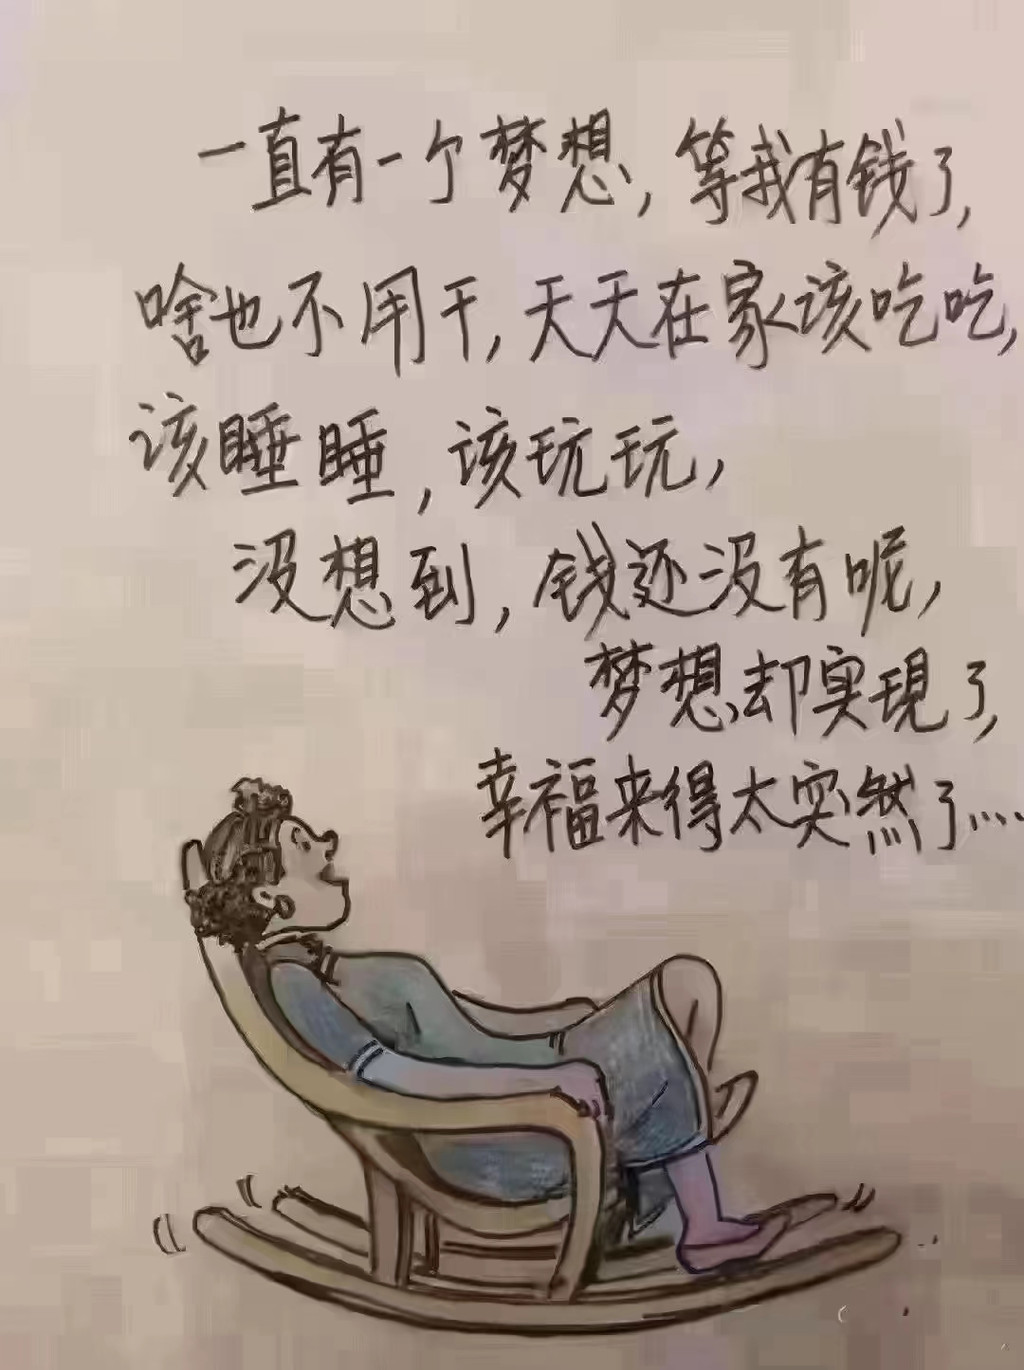 一直有一个梦想，等我有钱了，
啥也不用干，天天在家该吃吃，
该睡睡，该玩玩，
没想到，钱还没有呢，
梦想却实現了，
幸福来得太突然了……